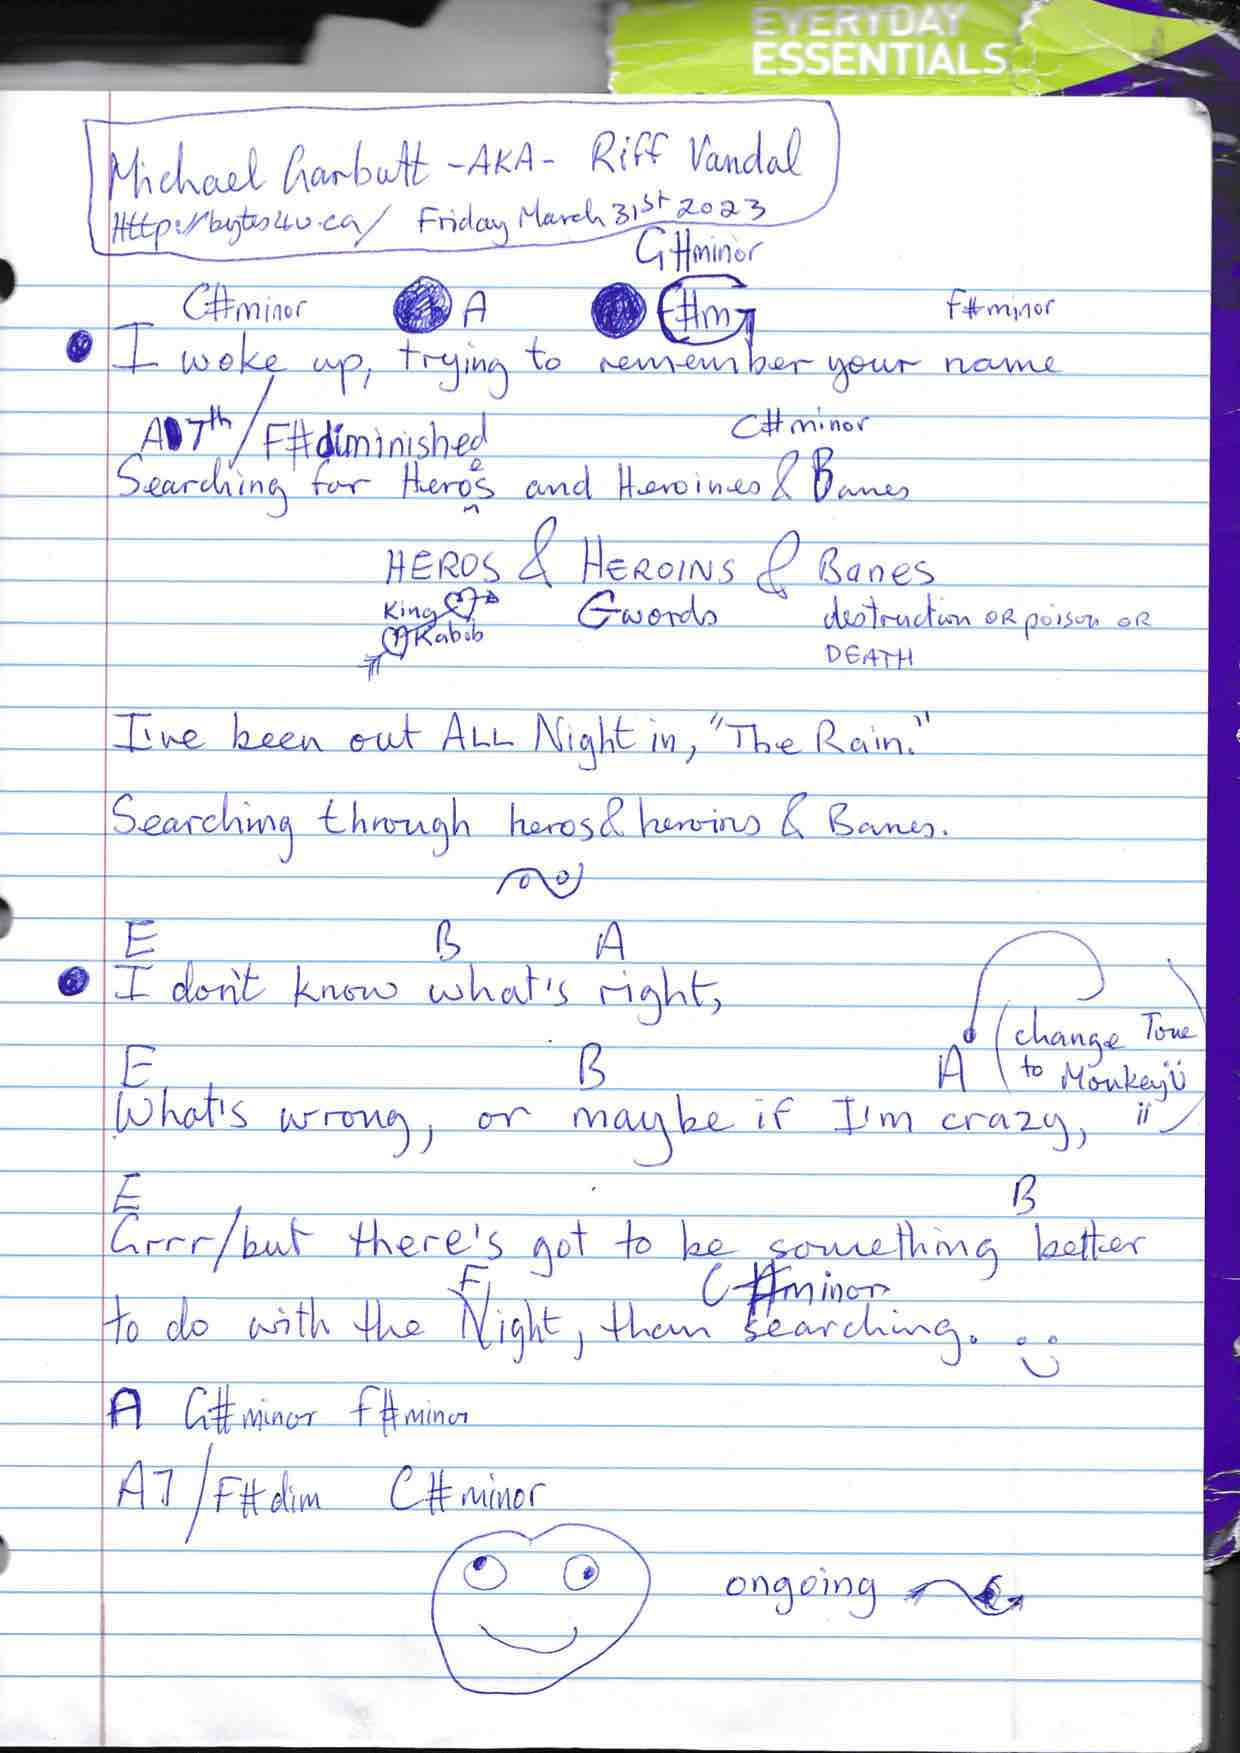 EVERYDAY
ESSENTIALS
Michael Garbutt -AKA- Riff Vandal
Http://bytes4u.ca/ Friday March 31st 2023
G#minor
C#minor A F#m F#minor
I woke up, trying to remember your name
A 7th / F#diminished C#minor
Searching for Heroes and Heroines & Banes
HEROS & HEROINS & Banes
King Gwords destruction OR poison OR
Kabob DEATH
I've been out ALL Night in, "The Rain."
Searching through heros & heroins & Banes.
E B A
I don't know what's right,
(change Tone
E B A to Monkey
What's wrong, or maybe if I'm crazy, )
E B
Grrr/but there's got to be something better
E C#minor
to do with the Night, than searching.
A G#minor F#minor
A7 / F#dim C#minor
ongoing